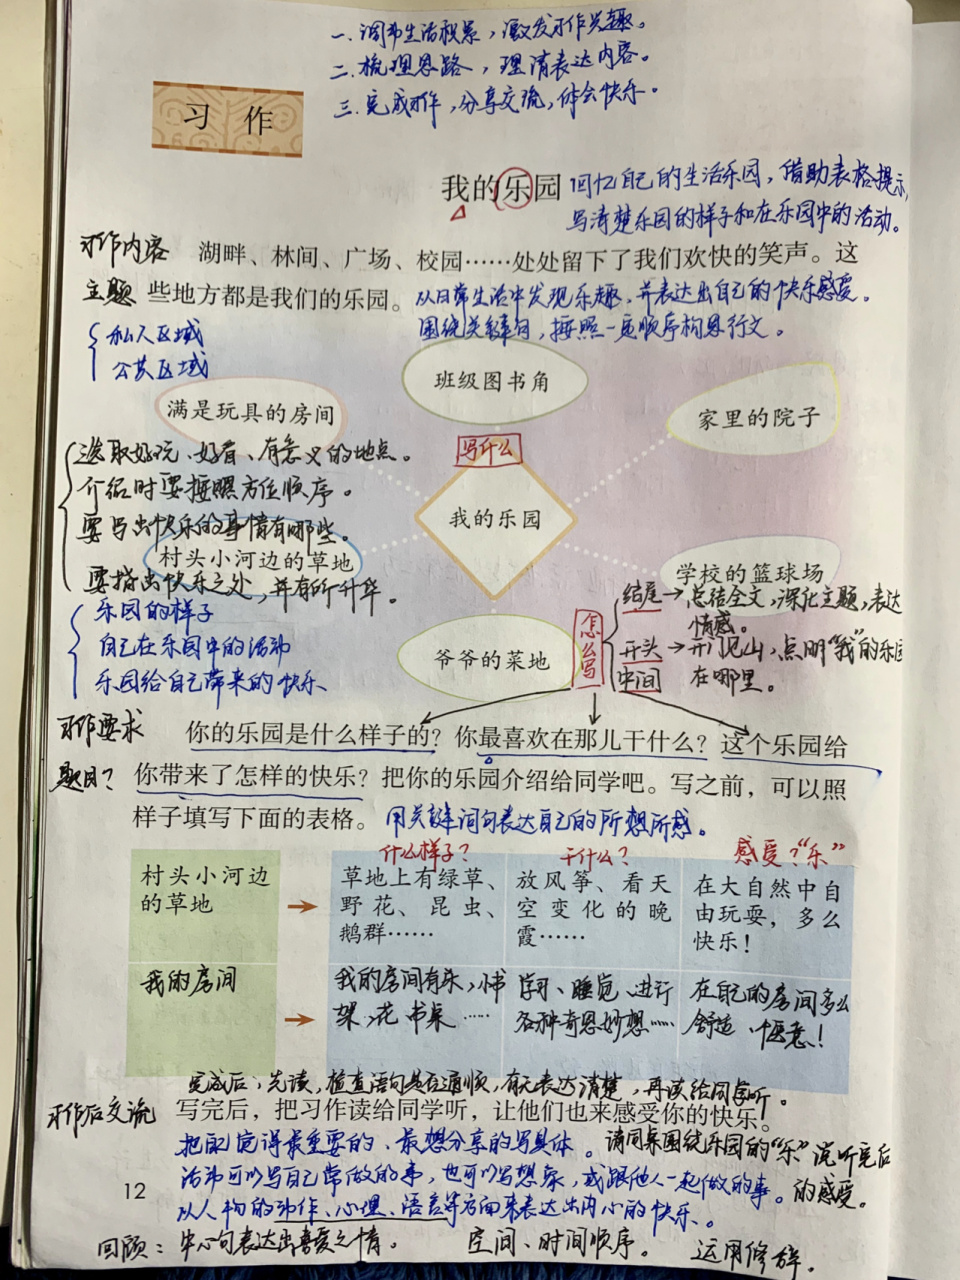 一.调动生活积累，激发习作兴趣。
二.梳理思路，理清表达内容。
三.完成习作，分享交流，体会快乐。
习 作
我的乐园
回忆自己的生活乐园，借助表格提示，
写清楚乐园的样子和在乐园中的活动。
习作内容
湖畔、林间、广场、校园……处处留下了我们欢快的笑声。这
主题
些地方都是我们的乐园。
从日常生活中发现乐趣，并表达出自己的快乐感受。
围绕关键句，按照一定顺序构思行文。
私人区域
公共区域
班级图书角
满是玩具的房间
家里的院子
写什么
选取好玩、好看、有意义的地点。
介绍时要按照方位顺序。
我的乐园
要写出快乐的事情有哪些。
村头小河边的草地
学校的篮球场
要指出快乐之处，并有所升华。
乐园的样子
自己在乐园中的活动
乐园给自己带来的快乐
爷爷的菜地
怎么写
结尾→总结全文，深化主题，表达
情感。
开头→开门见山，点明“我”的乐园
在哪里。
中间
习作要求
你的乐园是什么样子的？你最喜欢在那儿干什么？这个乐园给
题目？
你带来了怎样的快乐？把你的乐园介绍给同学吧。写之前，可以照
样子填写下面的表格。
用关键词句表达自己的所想所感。
什么样子？
干什么？
感受？“乐”
村头小河边
的草地
草地上有绿草、
野花、昆虫、
鹅群……
放风筝、看天
空变化的晚
霞……
在大自然中自
由玩耍，多么
快乐！
我的房间
我的房间有床，书
架，花 书桌……
学习、睡觉、进行
各种奇思妙想……
在自己的房间多么
舒适、惬意！
完成后，先读，检查语句是否通顺，有无表达清楚，再读给同桌听。
习作后交流
写完后，把习作读给同学听，让他们也来感受你的快乐。
把自己觉得最重要的、最想分享的写具体。
请同桌围绕乐园的“乐”说听完后
的感受。
活动可以写自己常做的事，也可以写想象，或跟他人一起做的事。
12
从人物的动作、心理、语言等方面来表达出内心的快乐。
回顾：中心句表达出喜爱之情。
空间、时间顺序。
运用修辞。